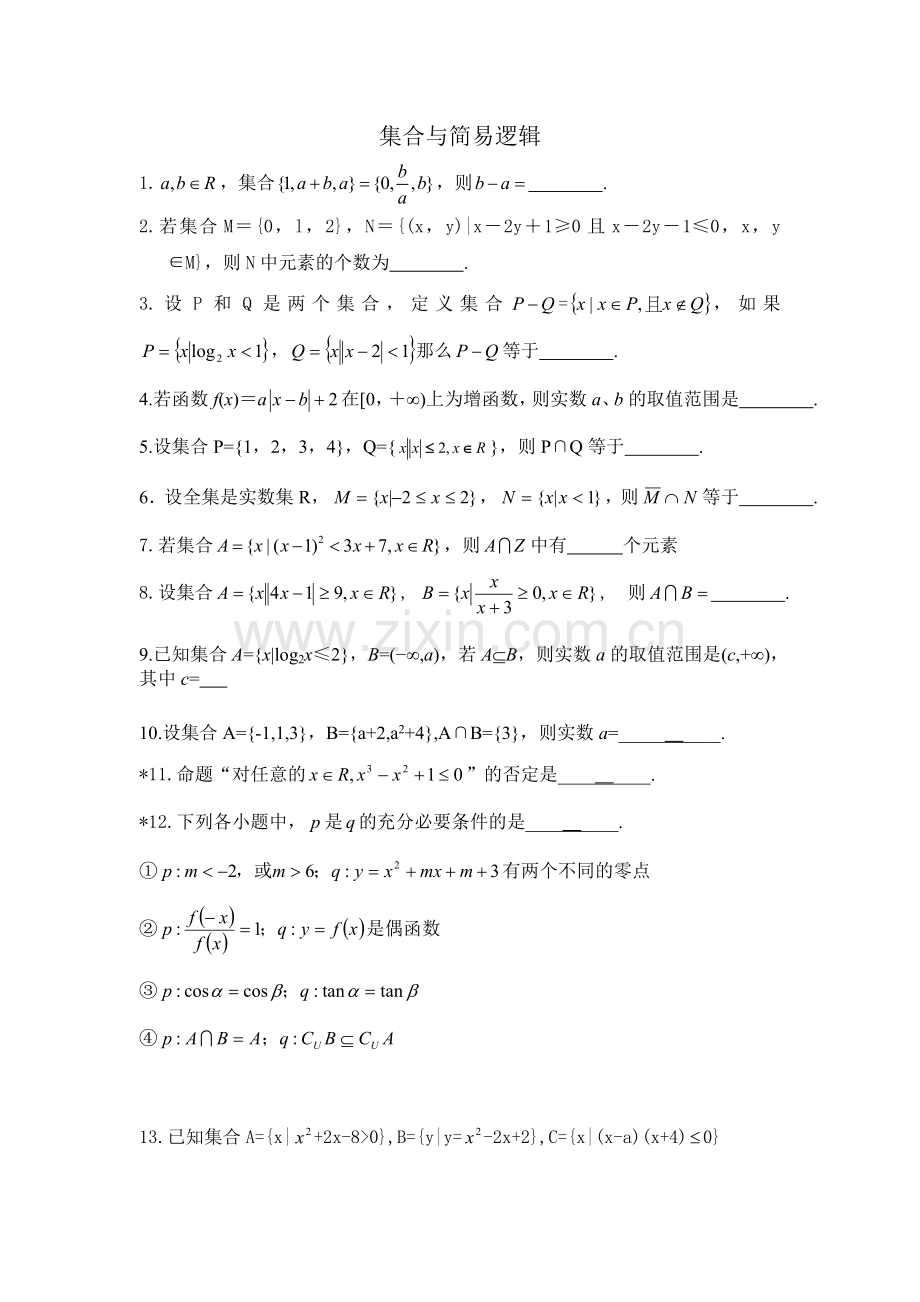 集合与简易逻辑
1. a,b∈R，集合{1,a+b,a}={0,b/a,b}，则b−a=________.
2.若集合M＝{0，l，2}，N＝{(x，y)|x－2y＋1≥0 且 x－2y－1≤0，x，y
∈M}，则N中元素的个数为________.
3. 设 P 和 Q 是两个集合，定义集合 P−Q={x|x∈P,且x∉Q}，如果
P={x|log₂x<1}，Q={x||x−2|<1}那么P−Q等于________.
4.若函数f(x)＝a|x−b|+2在[0，＋∞)上为增函数，则实数a、b的取值范围是________.
5.设集合P={1，2，3，4}，Q={x||x|≤2,x∈R}，则P∩Q等于________.
6．设全集是实数集R，M={x|−2≤x≤2}，N={x|x<1}，则M̅∩N等于________.
7.若集合A={x|(x−1)²<3x+7,x∈R}，则A⋂Z中有______个元素
8.设集合A={x||4x−1|≥9,x∈R}，B={x|x/(x+3)≥0,x∈R}， 则A⋂B=________.
9.已知集合A={x|log₂x≤2}，B=(−∞,a)，若A⊆B，则实数a的取值范围是(c,+∞)，
其中c=___
10.设集合A={-1,1,3}，B={a+2,a²+4},A∩B={3}，则实数a=___________.
*11.命题“对任意的x∈R,x³−x²+1≤0”的否定是__________.
*12.下列各小题中，p是q的充分必要条件的是__________.
①p:m<−2，或m>6；q:y=x²+mx+m+3有两个不同的零点
②p:f(−x)/f(x)=1；q:y=f(x)是偶函数
③p:cosα=cosβ；q:tanα=tanβ
④p:A⋂B=A；q:C_U B⊆C_U A
13.已知集合A={x|x²+2x-8>0},B={y|y=x²-2x+2},C={x|(x-a)(x+4)≤0}
www.zixin.com.cn